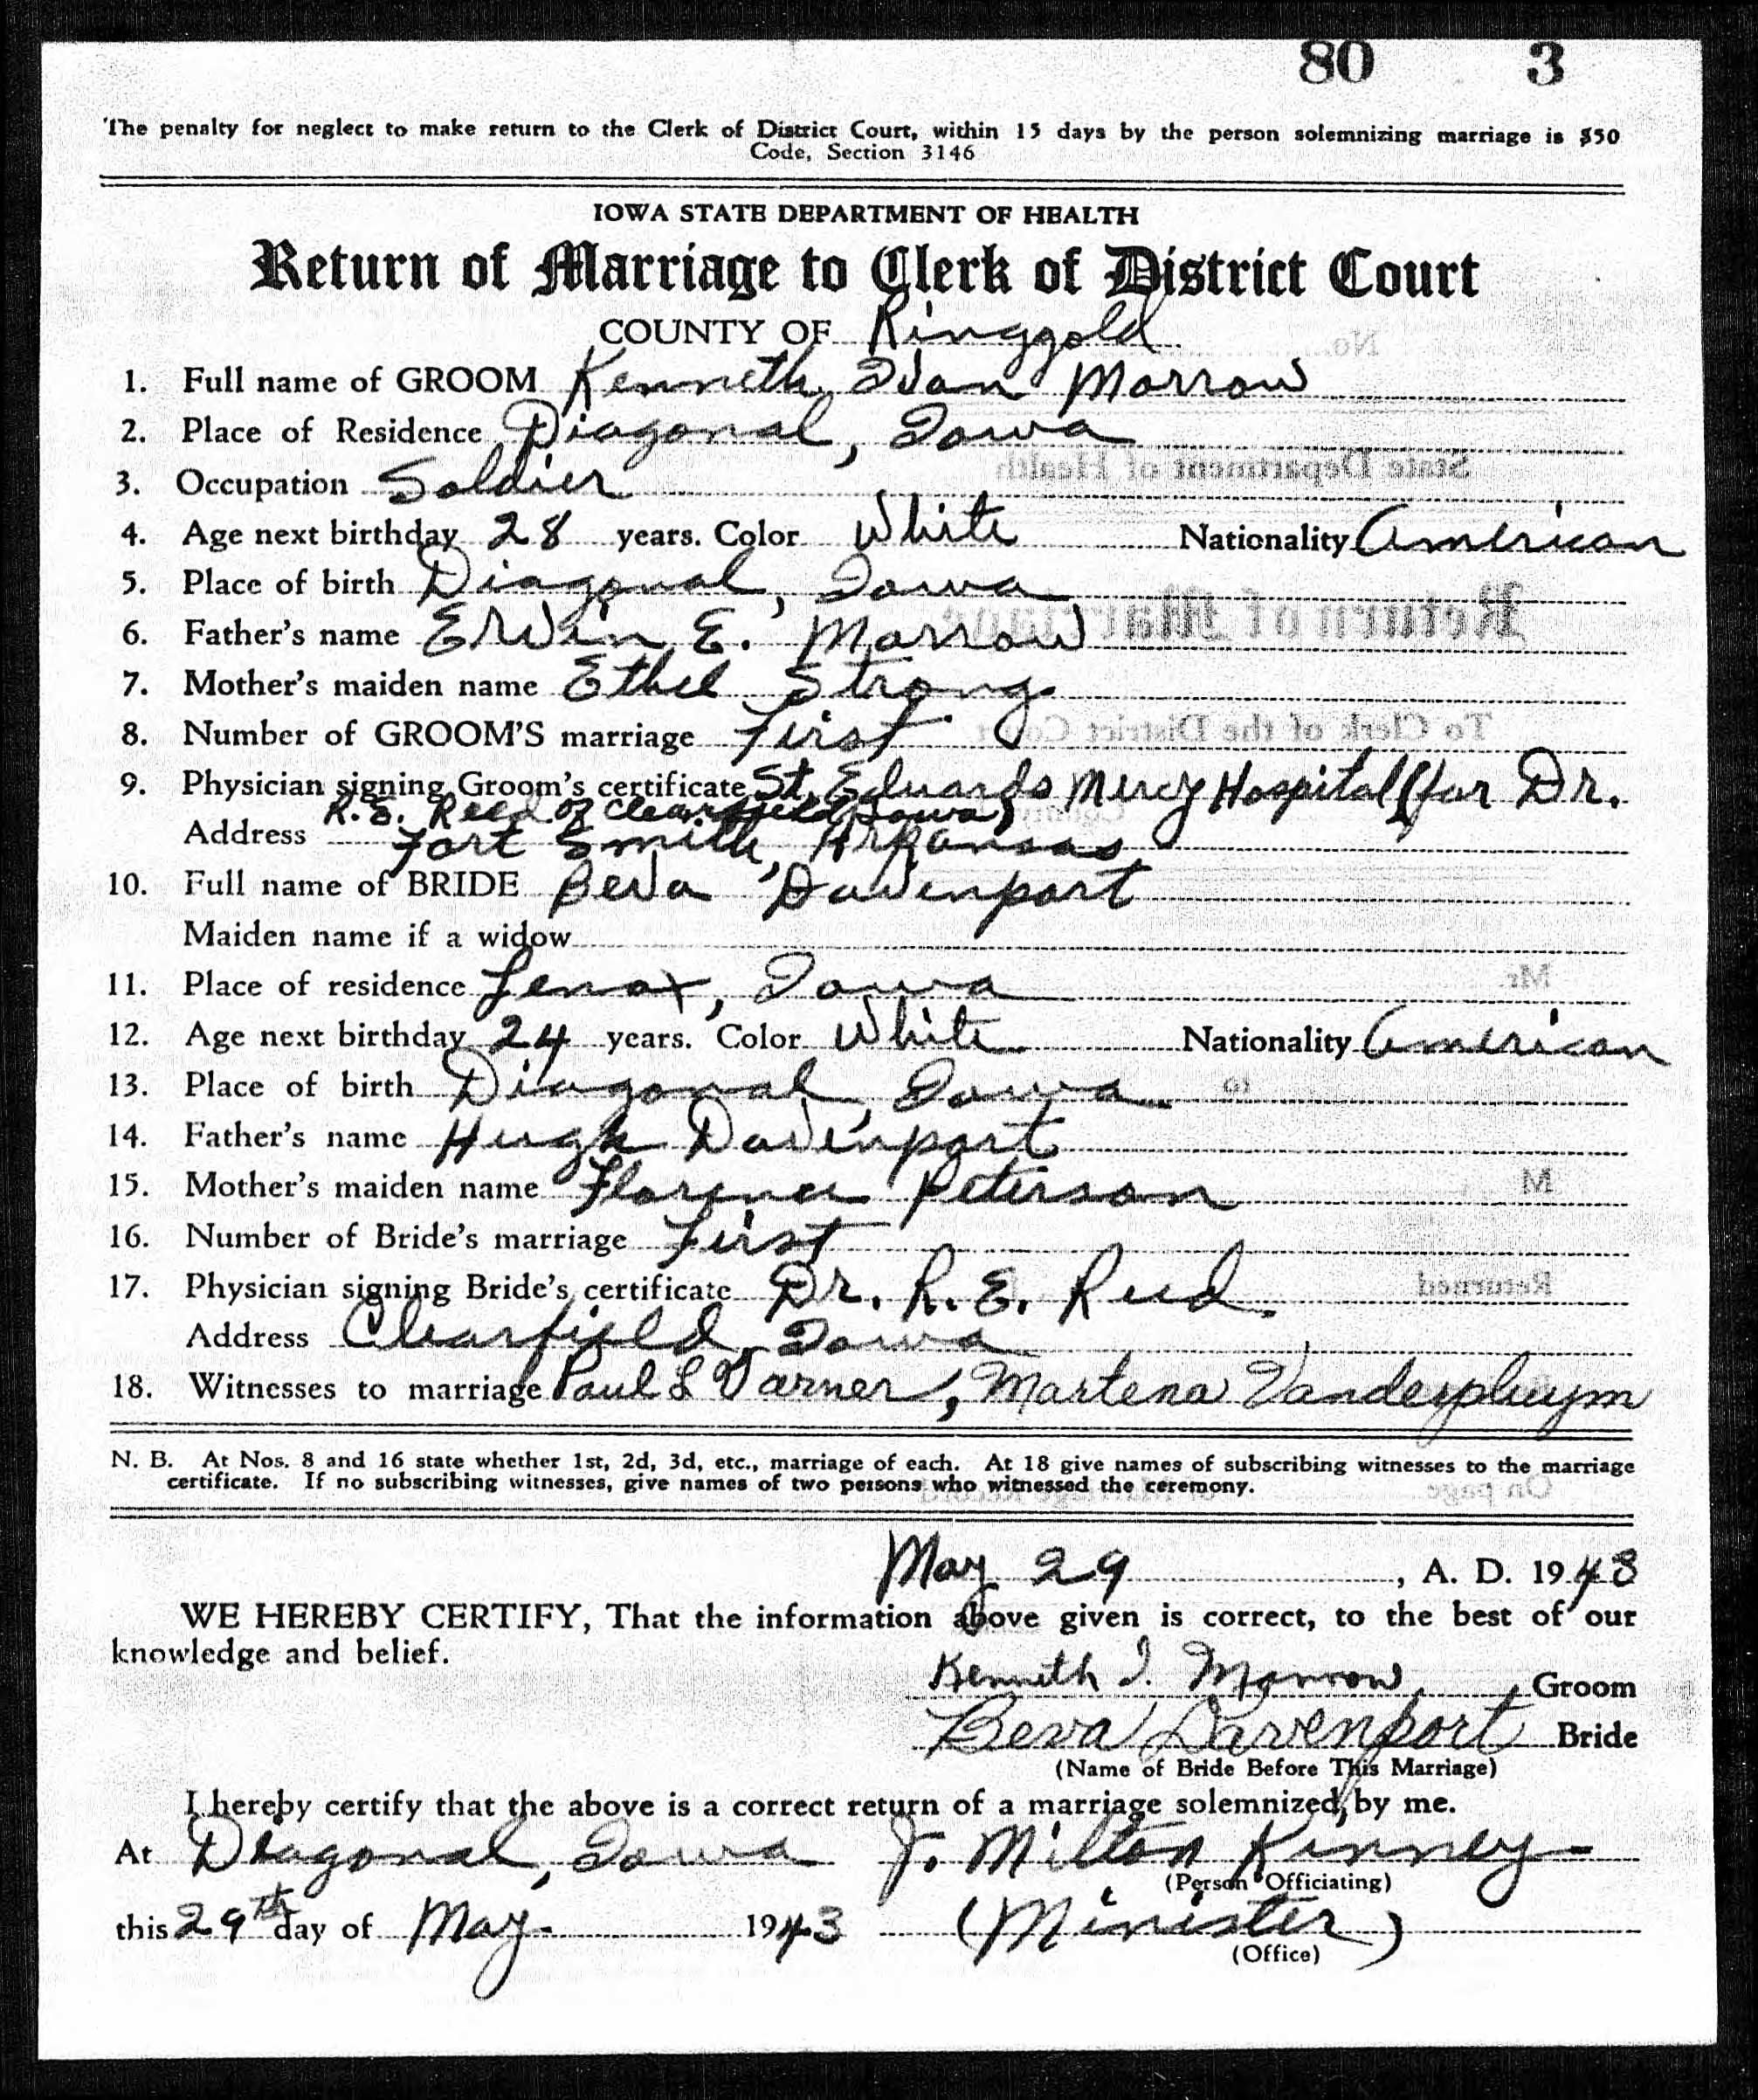 80 3
The penalty for neglect to make return to the Clerk of District Court, within 15 days by the person solemnizing marriage is $50
Code, Section 3146
IOWA STATE DEPARTMENT OF HEALTH
Return of Marriage to Clerk of District Court
COUNTY OF Ringgold
1. Full name of GROOM Kenneth Ivan Morrow
2. Place of Residence Diagonal, Iowa
3. Occupation Soldier
4. Age next birthday 28 years. Color White Nationality American
5. Place of birth Diagonal, Iowa
6. Father's name Ervin E. Morrow
7. Mother's maiden name Ethel Strong
8. Number of GROOM'S marriage First
9. Physician signing Groom's certificate St. Edwards Mercy Hospital (for Dr.
R. E. Reed of Clearfield, Iowa)
Address Fort Smith, Arkansas
10. Full name of BRIDE Beva Davenport
Maiden name if a widow
11. Place of residence Lenox, Iowa
12. Age next birthday 24 years. Color White Nationality American
13. Place of birth Diagonal, Iowa
14. Father's name Hugh Davenport
15. Mother's maiden name Florence Peterson
16. Number of Bride's marriage First
17. Physician signing Bride's certificate Dr. R. E. Reed
Address Clearfield, Iowa
18. Witnesses to marriage Paul L Varner, Martena Vanderpluym
N. B. At Nos. 8 and 16 state whether 1st, 2d, 3d, etc., marriage of each. At 18 give names of subscribing witnesses to the marriage
certificate. If no subscribing witnesses, give names of two persons who witnessed the ceremony.
May 29, A. D. 1943
WE HEREBY CERTIFY, That the information above given is correct, to the best of our
knowledge and belief.
Kenneth I. Morrow Groom
Beva Davenport Bride
(Name of Bride Before This Marriage)
I hereby certify that the above is a correct return of a marriage solemnized by me.
At Diagonal, Iowa J. Milton Kinney
(Person Officiating)
this 29th day of May 1943 (Minister)
(Office)